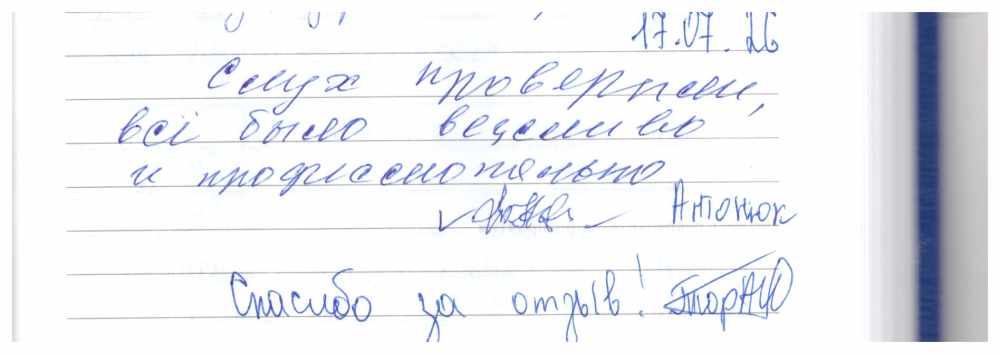 17.07.26
Слух проверили,
всё было вежливо
и профессионально
Антонюк
Спасибо за отзыв!